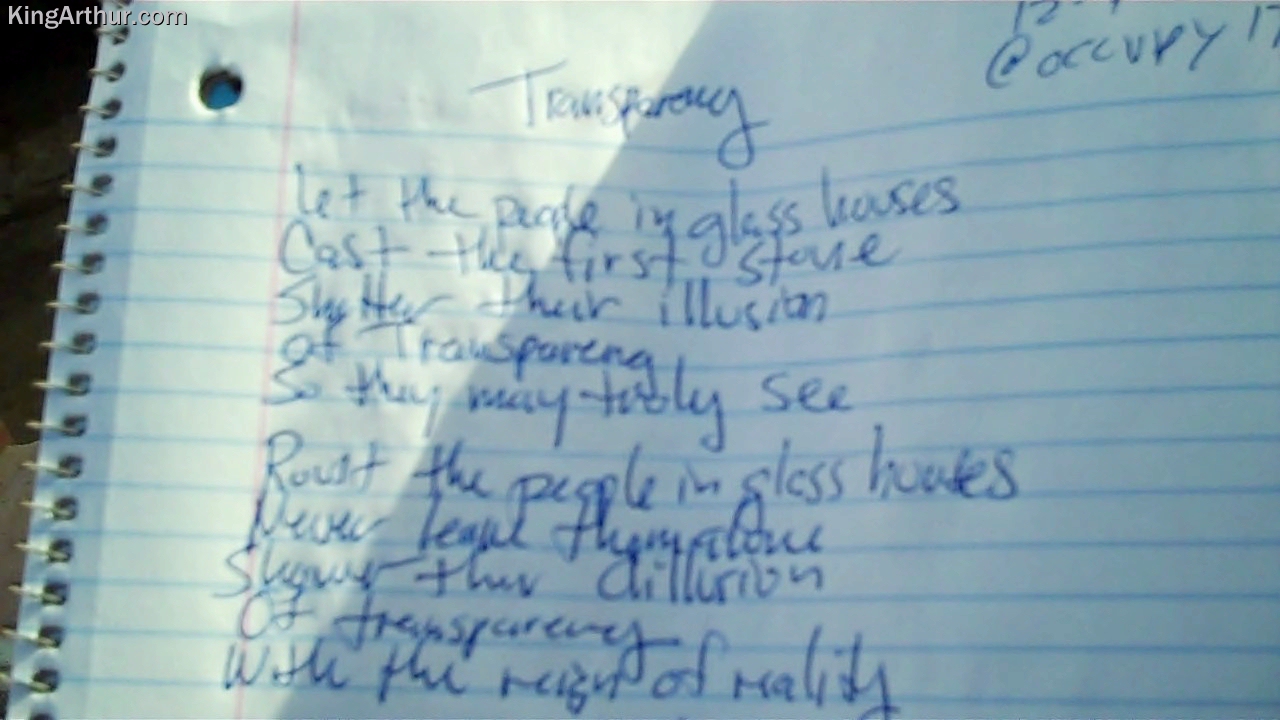 KingArthur.com
@occupy 17
Transparency
Let the people in glass houses
Cast the first stone
Shatter their illusion
of Transparency
So they may truly see
Roust the people in glass houses
Never leave them alone
Shower their dillusion
Of transparency
With the reign of reality